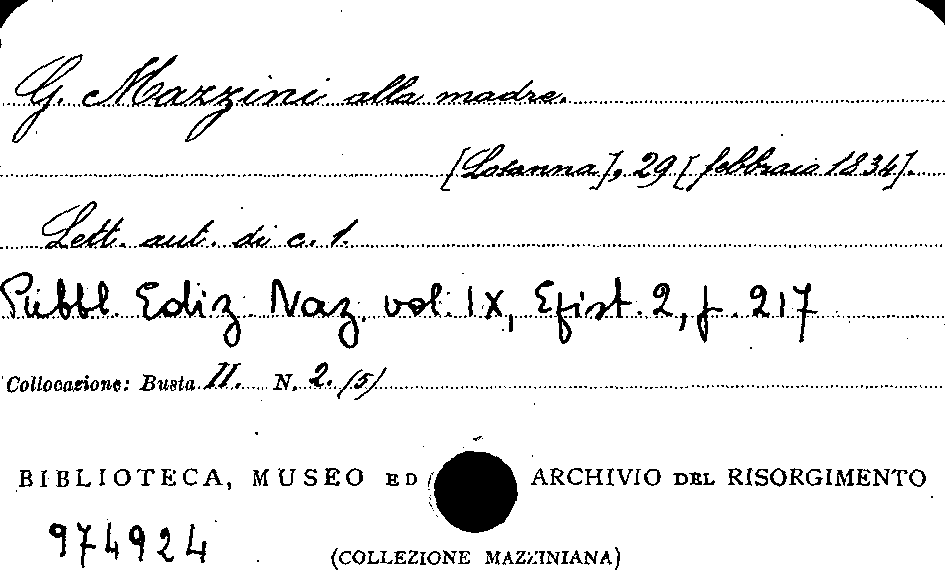 G. Mazzini alla madre.
[Losanna], 29 [febbraio 1834].
Lett. aut. di c. 1.
Pubbl. Ediz. Naz. vol. IX, Epist. 2, p. 217
Collocazione: Busta II. N. 2. (5)
BIBLIOTECA, MUSEO ED ARCHIVIO DEL RISORGIMENTO
974924
(COLLEZIONE MAZZINIANA)